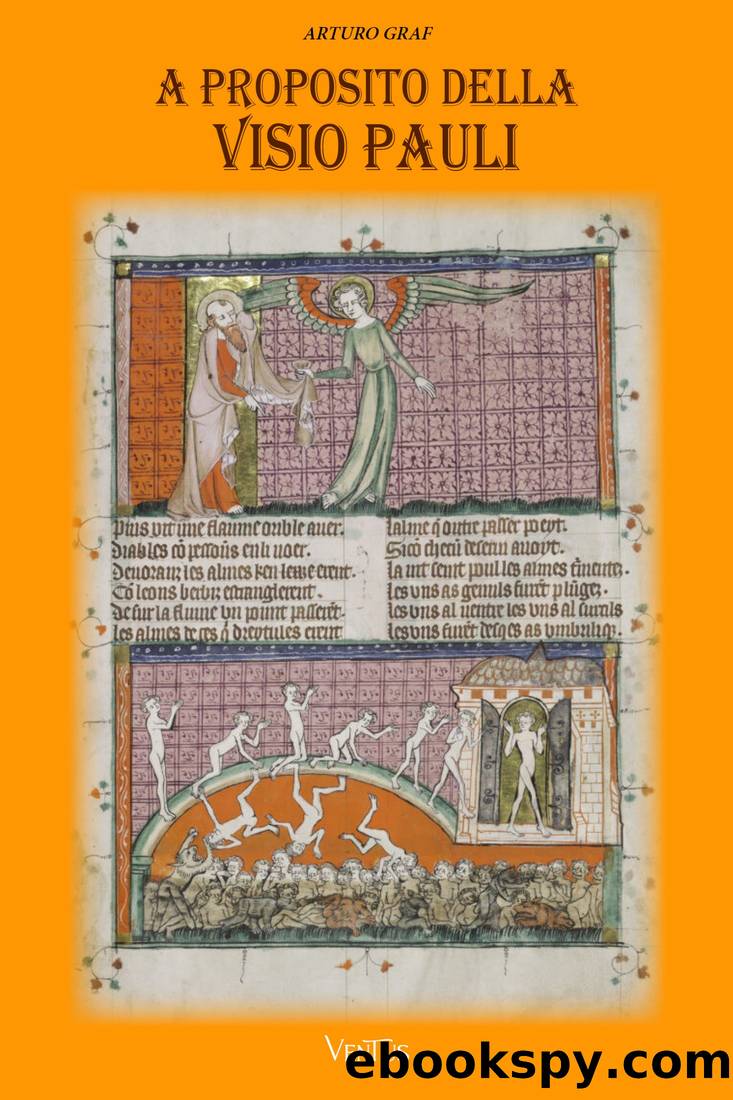 ARTURO GRAF
A PROPOSITO DELLA
VISIO PAULI
Puis vit une flaume orible auer.
Diables cō peissoūs enli noer.
Deuoranz les almes ken lewe erent.
Cō leons berbiz estranglerent.
de sur la flume vn pount passerēt.
les almes de ces q̄ dreytules erent
lalme q̄ outre passer poeyt.
Sicō checū deseru auoyt.
la vit seint poul les almes
les vns as genuils furēt plūgez.
les vns al uentre les vns al surcils
les vns furēt desqes as
ebookspy.com